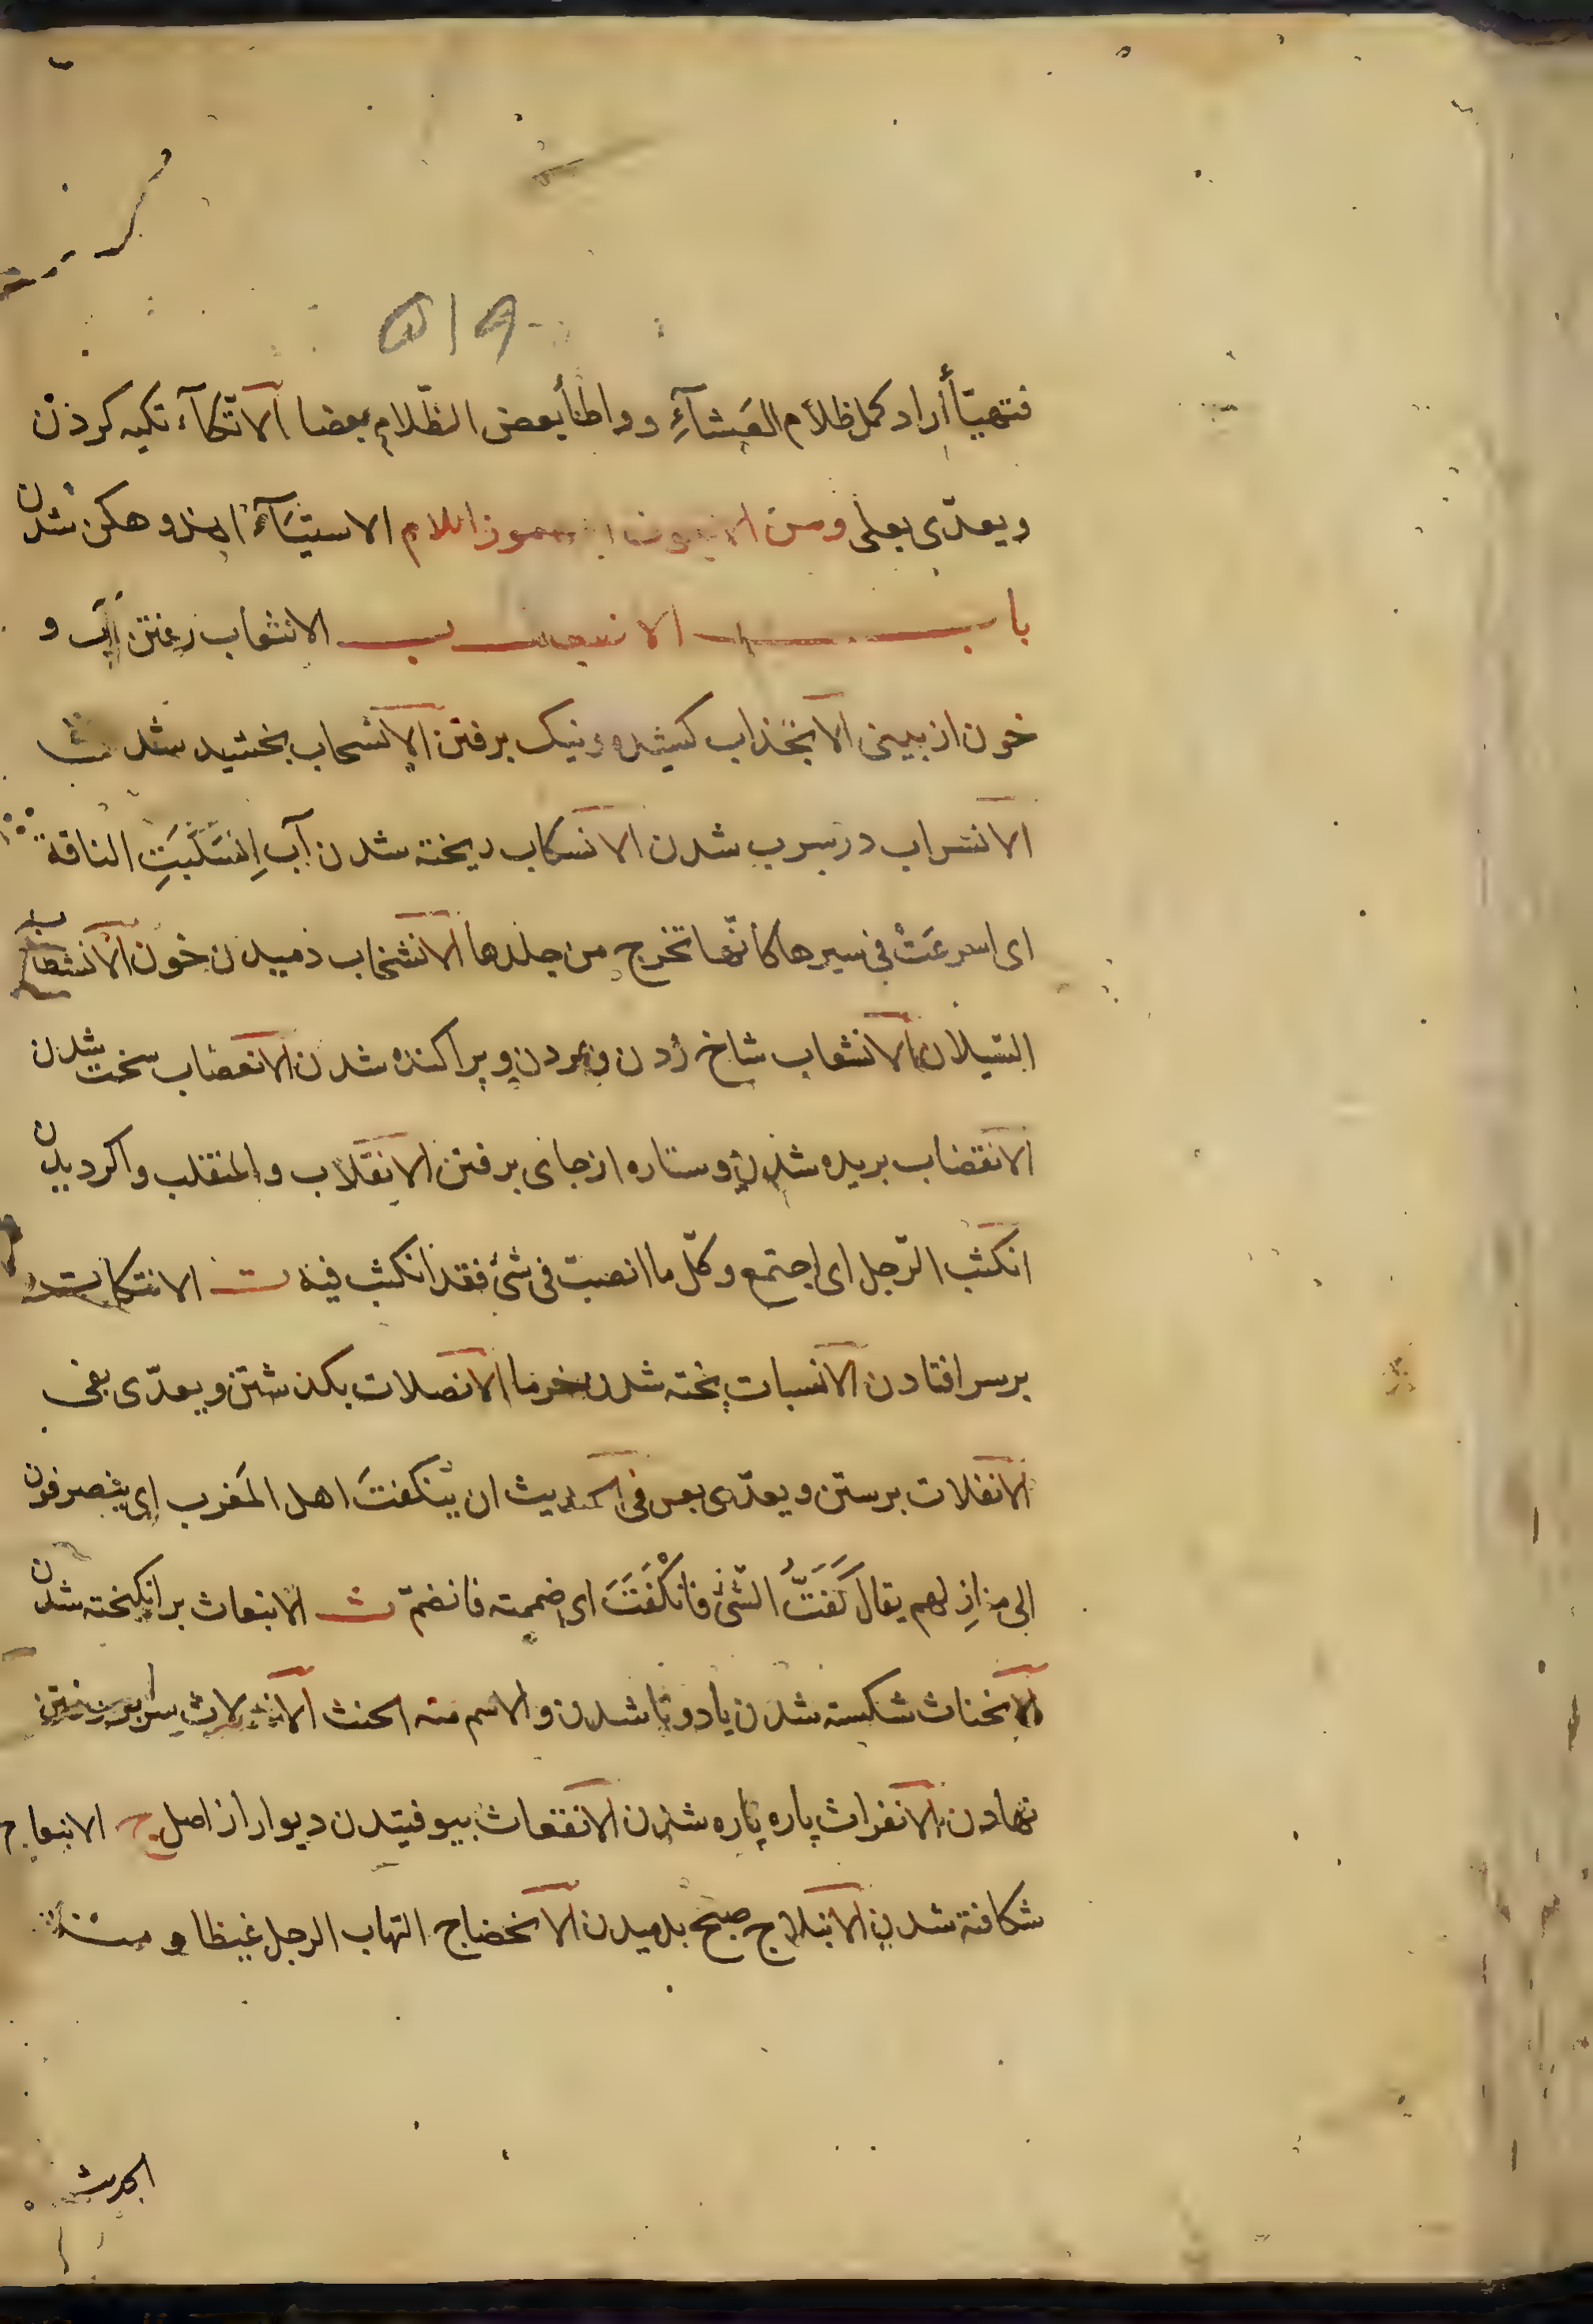 ۵۱۹
فتهيّأ أراد كمل ظلأم العَشآءِ وواطأ بعض الظّلام بعضا الاتّكآء تكيه كردن
ويعدّى بعلى ومن المهموز اللام الاستيثآء
باب الانثعاب رفتن آب و
خون از بينى الانجذاب كشيده ونيك برفتن الانسحاب بخشيد شدن
الانسراب در سرب شدن الانسكاب ريخته شدن آب اِنسَكَبَتِ الناقة
اى اسرعَتْ فى سيرها كانّها تخرج من جلدها الانشخاب دميدن خون الانشطاب
السّيلان الانشعاب شاخ زدن ومردن وپراكنده شدن الانعصاب سخت شدن
الانقضاب بريده شدن وستاره از جاى برفتن الانقلاب والمنقلب واكرديدن
انكثب الرّجل اى اجتمع وكلّ ما انصبّ فى شئ فقد انكثب فيه ت الانتكات
برسر افتادن الانسبات پخته شدن خرما الانصلات بكذشتن ويعدّى بفى
الانفلات برستن ويعدّى بمن فى الحديث ان يَنكفتَ اهل المَغرب اى ينصرفون
الى منازِلهم يقال كَفَتُّ الشّئ فانْكَفَتَ اى ضممته فانضمّ ث الانبعاث برانكيخته شدن
الانخناث شكسته شدن يا دوتا شدن والاسم منه الحنث
نهادن الانفراث پاره پاره شدن الانقعاث بيوفتيدن ديوار از اصل ج الانبعاج
شكافته شدن الانبلاج صبح بدميدن الانخضاج التهاب الرجل غيظا ومنه
الحديث